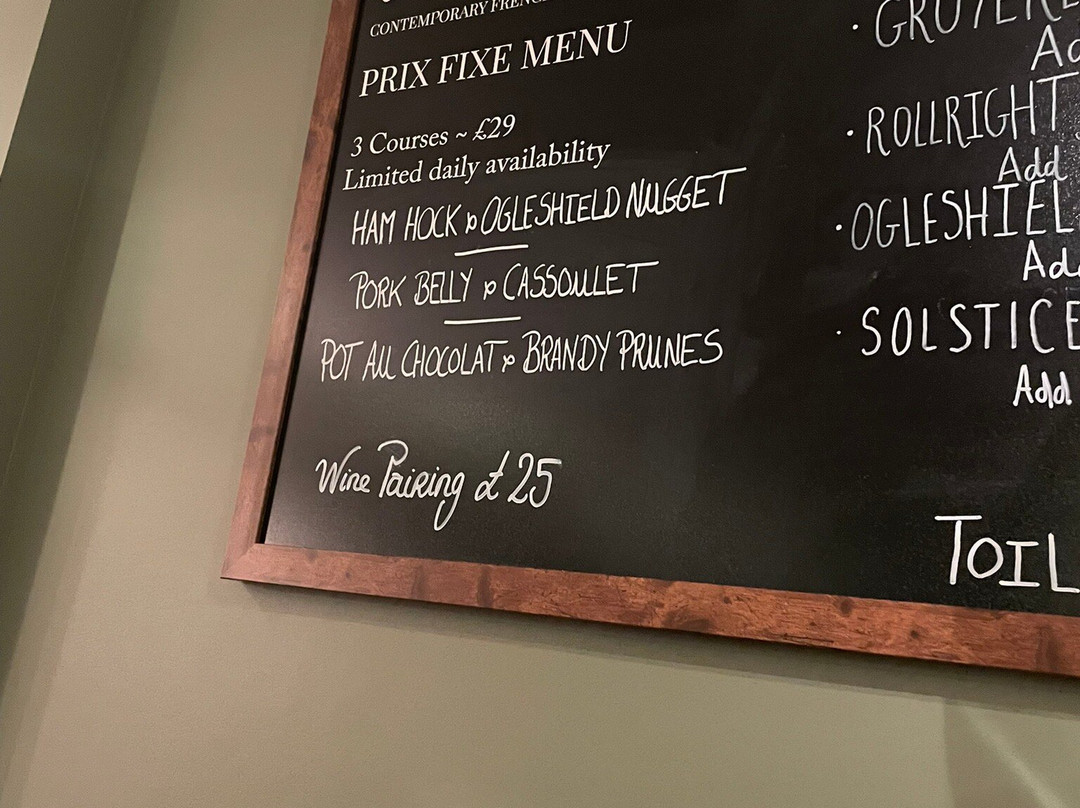 CONTEMPORARY
PRIX FIXE MENU
3 Courses ~ £29
Limited daily availability
HAM HOCK & OGLESHIELD NUGGET
PORK BELLY & CASSOULET
POT AU CHOCOLAT & BRANDY PRUNES
Wine Pairing £25
· ROLLRIGHT
Add
· OGLESHIEL
Add
· SOLSTICE
Add
TOIL